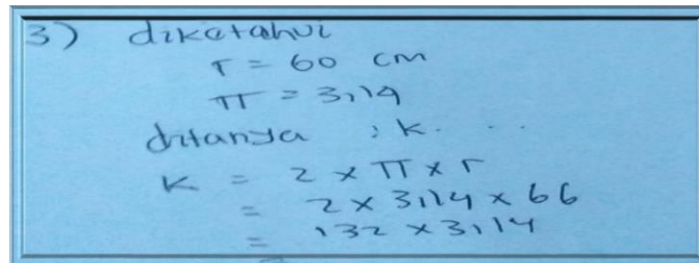 3) diketahui
r = 60 cm
π = 3,14
ditanya : k. . .
K = 2 x π x r
= 2 x 3,14 x 66
= 132 x 3,14
=